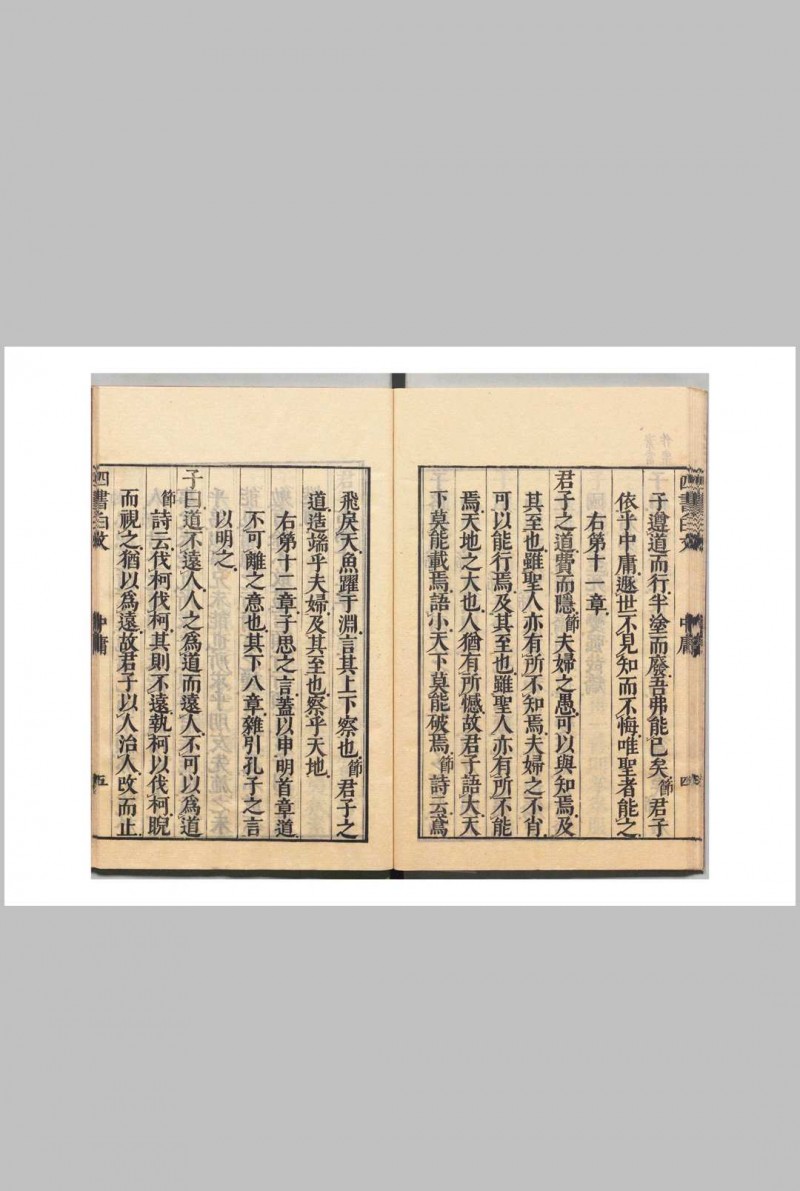 四書白文
中庸
四
子遵道而行半塗而廢吾弗能已矣節君子
依乎中庸遯世不見知而不悔唯聖者能之
右第十一章
君子之道費而隱節夫婦之愚可以與知焉及
其至也雖聖人亦有所不知焉夫婦之不肖
可以能行焉及其至也雖聖人亦有所不能
焉天地之大也人猶有所憾故君子語大天
下莫能載焉語小天下莫能破焉節詩云鳶
飛戾天魚躍于淵言其上下察也節君子之
道造端乎夫婦及其至也察乎天地
右第十二章子思之言蓋以申明首章道
不可離之意也其下八章雜引孔子之言
以明之
子曰道不遠人人之為道而遠人不可以為道
節詩云伐柯伐柯其則不遠執柯以伐柯睨
而視之猶以為遠故君子以人治人改而止
四書白文
中庸
五